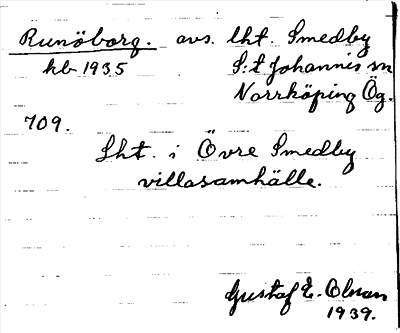 Runöborg. avs. lht. Smedby
kb 1935 S:t Johannis sn
Norrköping Ög.
709.
Lht. i Övre Smedby
villasamhälle.
Gustaf E. Olson
1939.